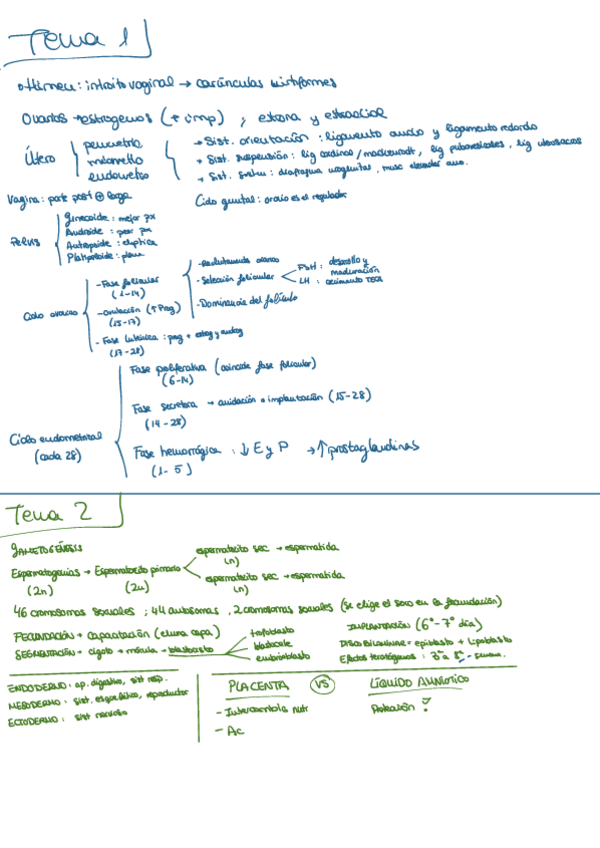 Tema 1
Himen: introito vaginal → carúnculas mirtiformes
Ovarios → estrogenos (+ imp) ; estrona y estradiol
Útero
perimetrio
miometrio
endometrio
→ Sist. orientación : ligamento ancho y ligamento redondo
→ Sist. suspensión : lig cardinal / mackenrodt, lig pubovesicales, lig uterosacros
→ Sist. : diafragma urogenital, musc elevador ano.
Vagina: parte post ⊕ larga
Ciclo genital : ovario es el regulador
Pelvis
Ginecoide : mejor px
Androide : peor px
Antropoide : elíptica
Platipeloide : plana
Ciclo ovarico
- Fase folicular
(1-14)
- Reclutamiento
- Selección folicular
FSH : desarrollo y
maduración
LH : crecimiento
- Dominancia del folículo
- Ovulación (↑ Prog)
(15-17)
- Fase luteínica : prog + estrog y androg
(17-28)
Ciclo endometrial
(cada 28)
Fase proliferativa (coincide fase folicular)
(6-14)
Fase secretora → anidación o implantación (15-28)
(14-28)
Fase hemorrágica : ↓ E y P → ↑ prostaglandinas
(1-5)
Tema 2
GAMETOGÉNESIS
Espermatogonias → Espermatocito primario
(2n) (2n)
espermatocito sec → espermatida
(n)
espermatocito sec → espermatida
(n)
46 cromosomas sexuales ; 44 autosomas, 2 cromosomas sexuales (se elige el sexo en la fecundación)
FECUNDACIÓN → Capacitación
SEGMENTACIÓN → cigoto → mórula → blastocisto
trofoblasto
blastocele
embrioblasto
IMPLANTACIÓN (6º - 7º día)
DISCO BILAMINAR = epiblasto + hipoblasto
Efectos teratógenos : 3ª a 8ª semana
ENDODERMO : ap. digestivo, sist resp.
MESODERMO : sist. esquelético, reproductor
ECTODERMO : sist nervioso
PLACENTA VS LÍQUIDO AMNIÓTICO
- Intercambio nutr
- Ac
Protección